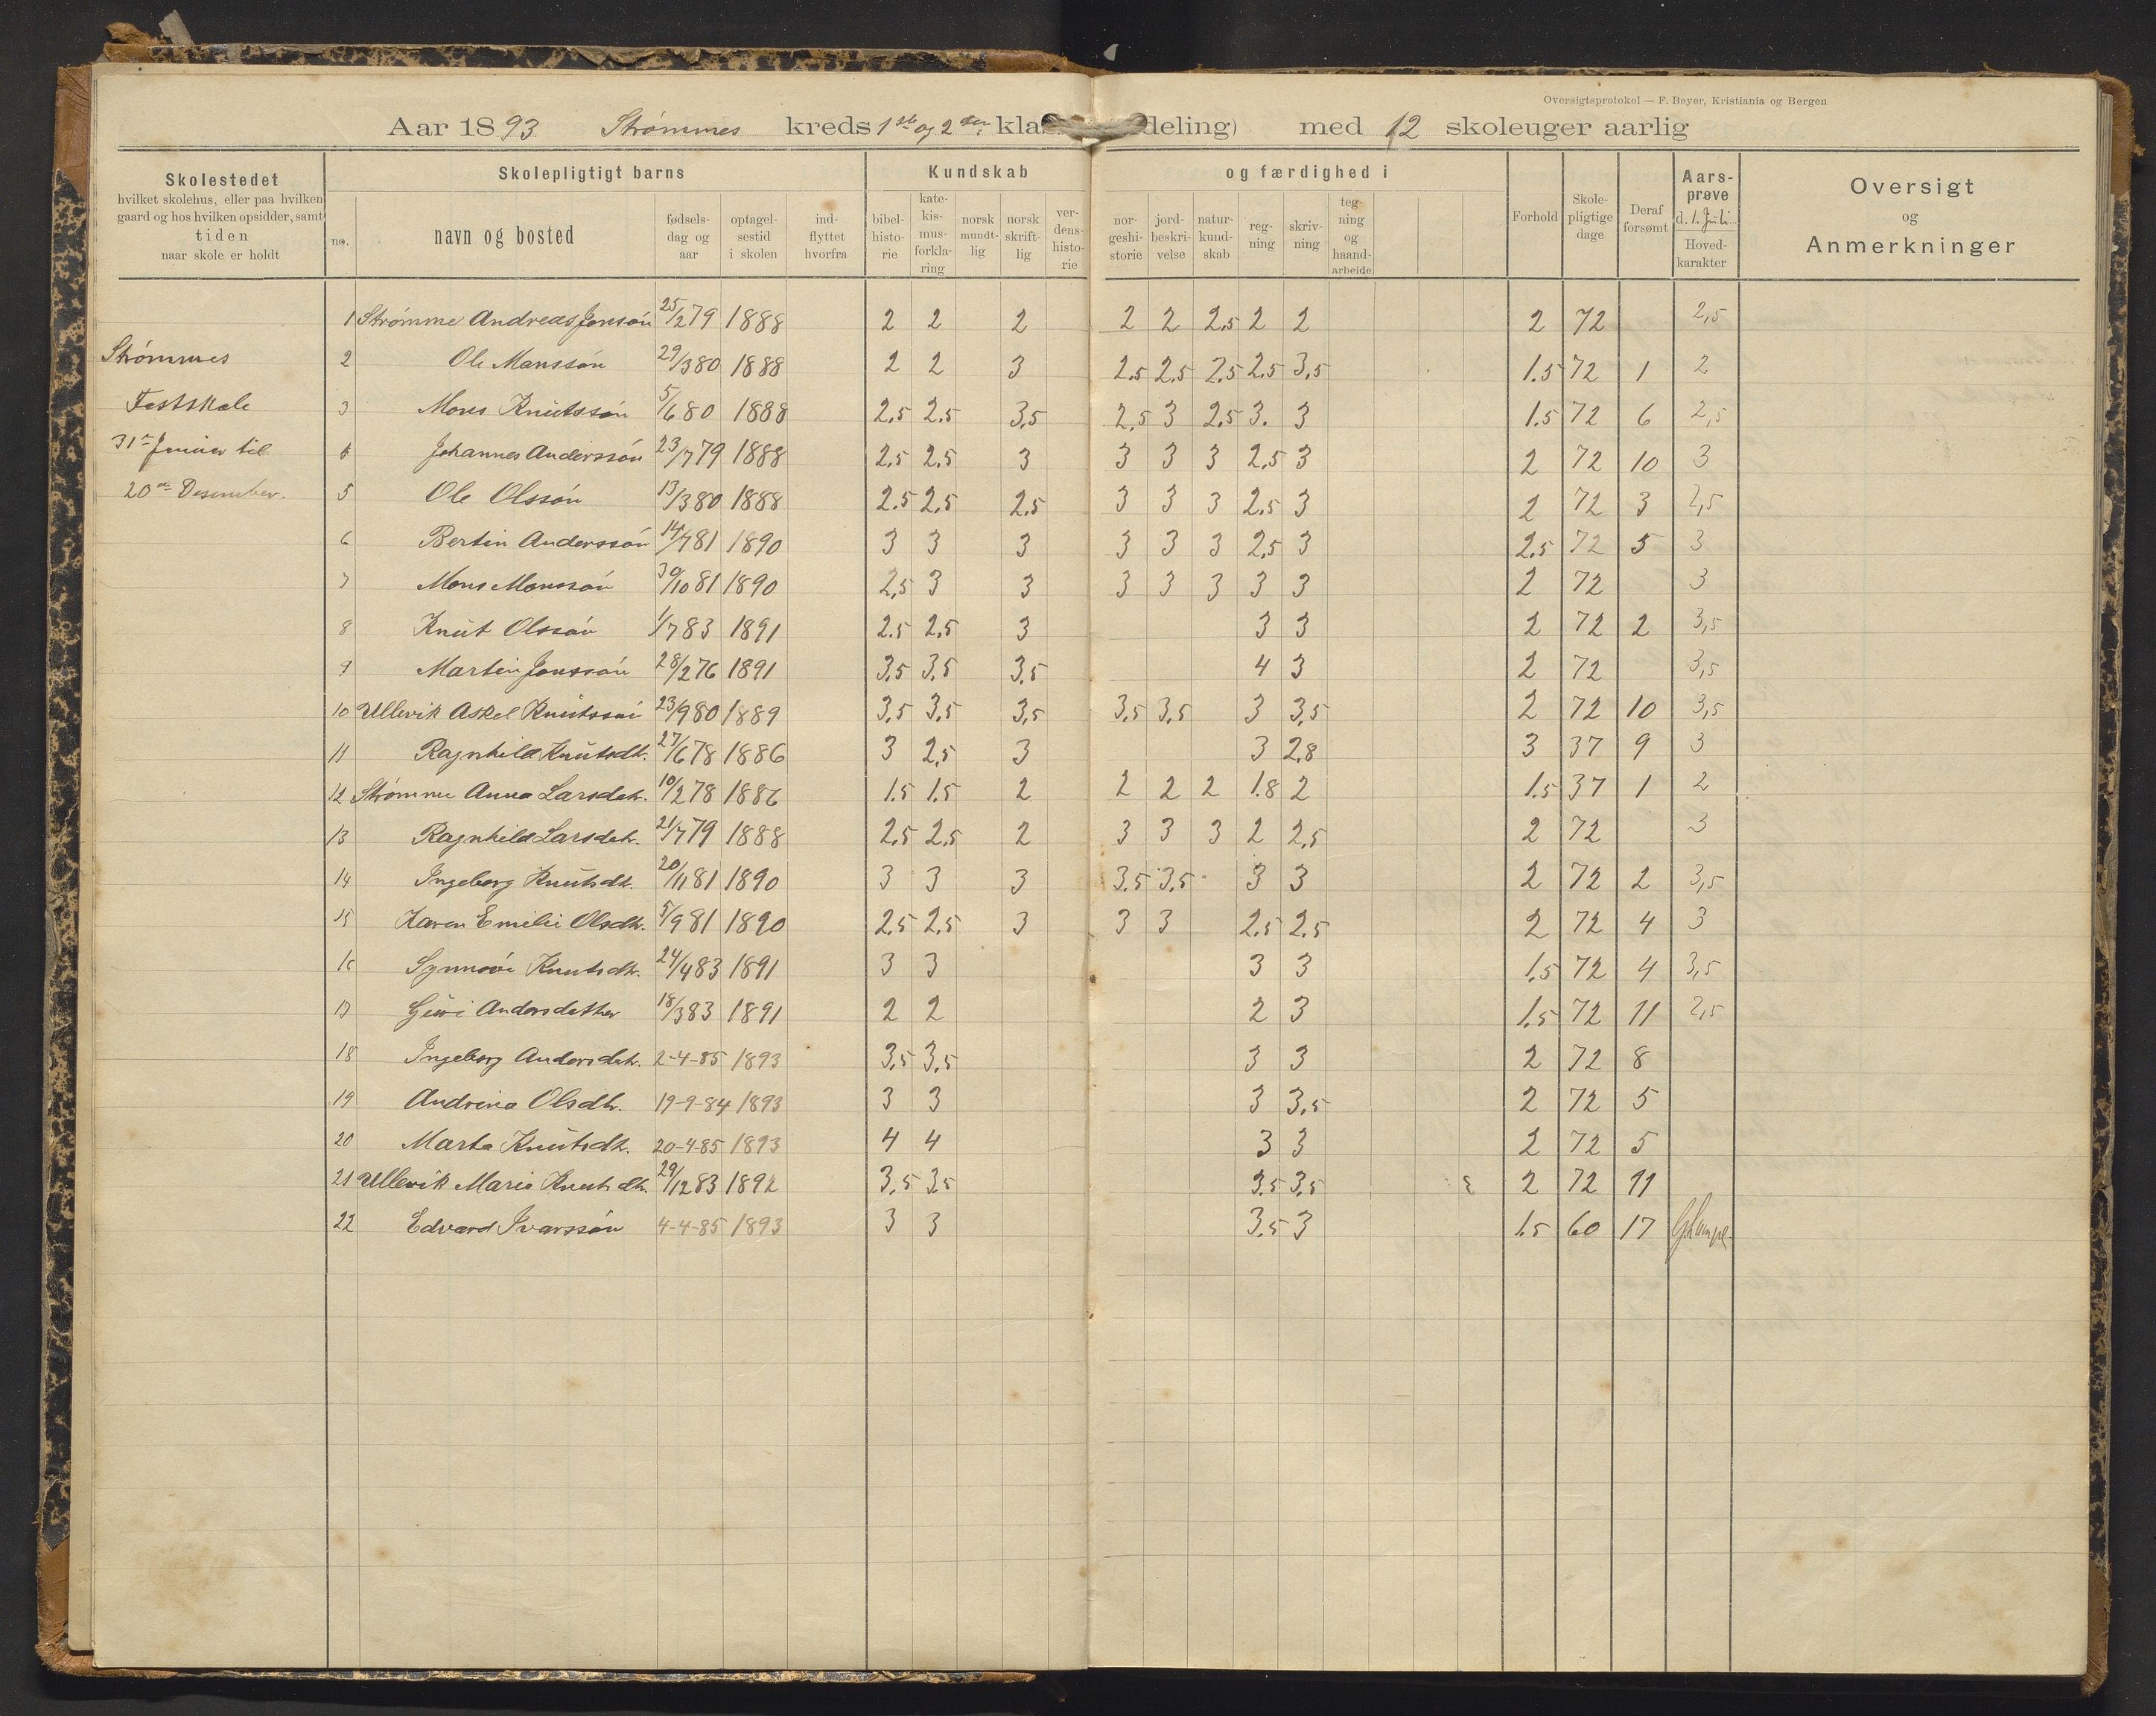 Oversigtsprotokol — F. Beyer, Kristiania og Bergen
Aar 1893 Strømmes kreds 1ste og 2den kla deling) med 12 skoleuger aarlig
Skolestedet
hvilket skolehus, eller paa hvilken
gaard og hos hvilken opsidder, samt
tiden
naar skole er holdt
Skolepligtigt barns
no.
navn og bosted
fødsels-
dag og
aar
optagel-
sestid
i skolen
ind-
flyttet
hvorfra
Kundskab
bibel-
histo-
rie
kate-
kis-
mus-
forkla-
ring
norsk
mundt-
lig
norsk
skrift-
lig
ver-
dens-
histo-
rie
og færdighed i
nor-
geshi-
storie
jord-
beskri-
velse
natur-
kund-
skab
reg-
ning
skriv-
ning
teg-
ning
og
haand-
arbeide
Forhold
Skole-
pligtige
dage
Deraf
forsømt
Aars-
prøve
d. 1. Juli
Hoved-
karakter
Oversigt
og
Anmerkninger
1 Strømme Andreas Jonsøn 25/2 79 1888 2 2 2 2 2 2,5 2 2 2 72 2,5
Strømmes 2 Ole Monssøn 29/3 80 1888 2 2 3 2.5 2.5 2.5 2.5 3,5 1.5 72 1 2
Fastskole 3 Mons Knutssøn 5/6 80 1888 2.5 2.5 3,5 2,5 3 2,5 3. 3 1.5 72 6 2,5
31te Januar til 4 Johannes Anderssøn 23/7 79 1888 2.5 2.5 3 3 3 3 2,5 3 2 72 10 3
20de Desember. 5 Ole Olssøn 13/3 80 1888 2.5 2,5 2,5 3 3 3 2.5 3 2 72 3 2,5
6 Bertin Anderssøn 14/7 81 1890 3 3 3 3 3 3 2,5 3 2.5 72 5 3
7 Mons Monssøn 30/10 81 1890 2,5 3 3 3 3 3 3 3 2 72 3
8 Knut Olssøn 1/7 83 1891 2.5 2,5 3 3 3 2 72 2 3,5
9 Martin Jonssøn 28/2 76 1891 3,5 3,5 3,5 4 3 2 72 3,5
10 Ullevik Askel Knutssøn 23/9 80 1889 3,5 3,5 3,5 3,5 3,5 3 3,5 2 72 10 3,5
11 Ragnhild Knutsdt. 27/6 78 1886 3 2,5 3 3 2,8 3 37 9 3
12 Strømme Anna Larsdtr. 10/2 78 1886 1.5 1.5 2 2 2 2 1.8 2 1.5 37 1 2
13 Ragnhild Larsdtr. 21/7 79 1888 2,5 2,5 2 3 3 3 2 2,5 2 72 3
14 Ingeborg Knutsdt. 20/11 81 1890 3 3 3 3,5 3,5 3 3 2 72 2 3,5
15 Karen Emilie Olsdtr. 5/9 81 1890 2,5 2,5 3 3 3 2.5 2.5 2 72 4 3
16 Synnøve Knutsdtr. 24/4 83 1891 3 3 3 3 1.5 72 4 3,5
17 Guri Andersdatter 18/3 83 1891 2 2 2 3 1.5 72 11 2,5
18 Ingeborg Andersdtr. 2-4-85 1893 3,5 3,5 3 3 2 72 8
19 Andrina Olsdtr. 19-9-84 1893 3 3 3 3,5 2 72 5
20 Marta Knutsdt. 20-4-85 1893 4 4 3 3 2 72 5
21 Ullevik Maria Knutsdtr. 29/12 83 1892 3,5 3,5 3,5 3,5 2 72 11
22 Edvard Ivarssøn 4-4-85 1893 3 3 3,5 3 1.5 60 17